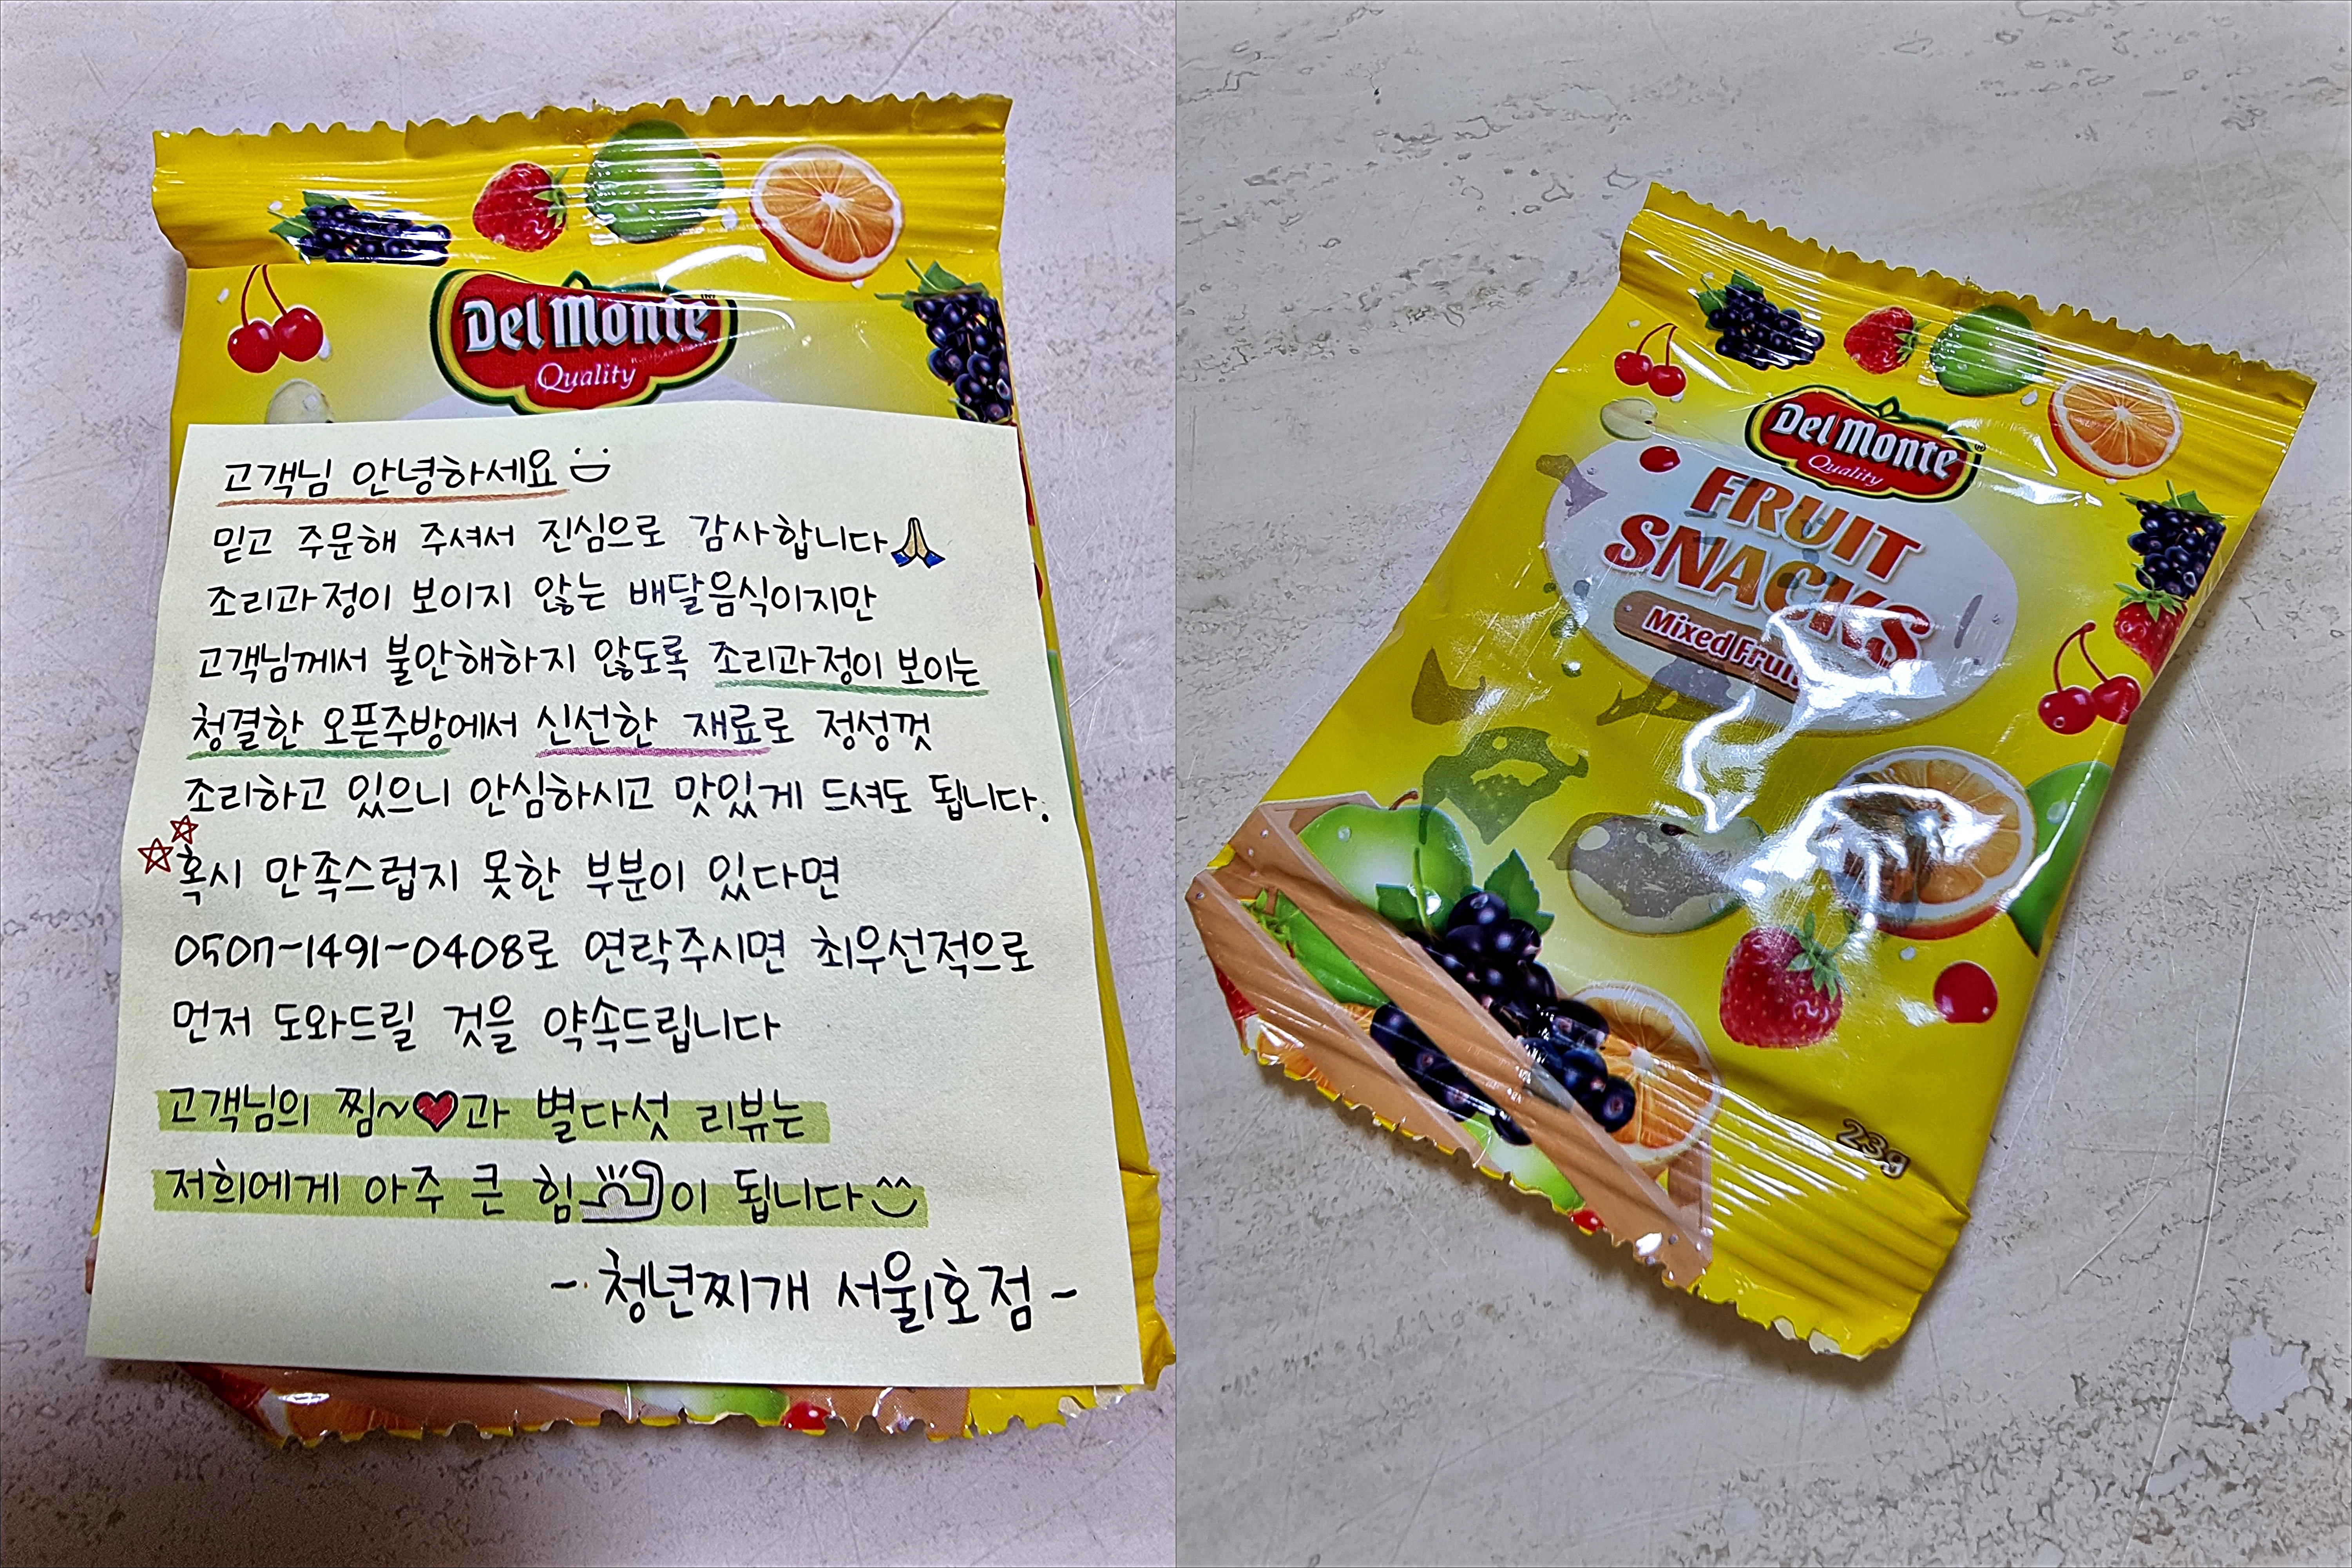 Del Monte
Quality
고객님 안녕하세요
믿고 주문해 주셔서 진심으로 감사합니다
조리과정이 보이지 않는 배달음식이지만
고객님께서 불안해하지 않도록 조리과정이 보이는
청결한 오픈주방에서 신선한 재료로 정성껏
조리하고 있으니 안심하시고 맛있게 드셔도 됩니다.
혹시 만족스럽지 못한 부분이 있다면
0507-1491-0408로 연락주시면 최우선적으로
먼저 도와드릴 것을 약속드립니다
고객님의 찜~♥과 별다섯 리뷰는
저희에게 아주 큰 힘이 됩니다
- 청년찌개 서울1호점 -
Del Monte
Quality
FRUIT
SNACKS
Mixed Fruit
23g